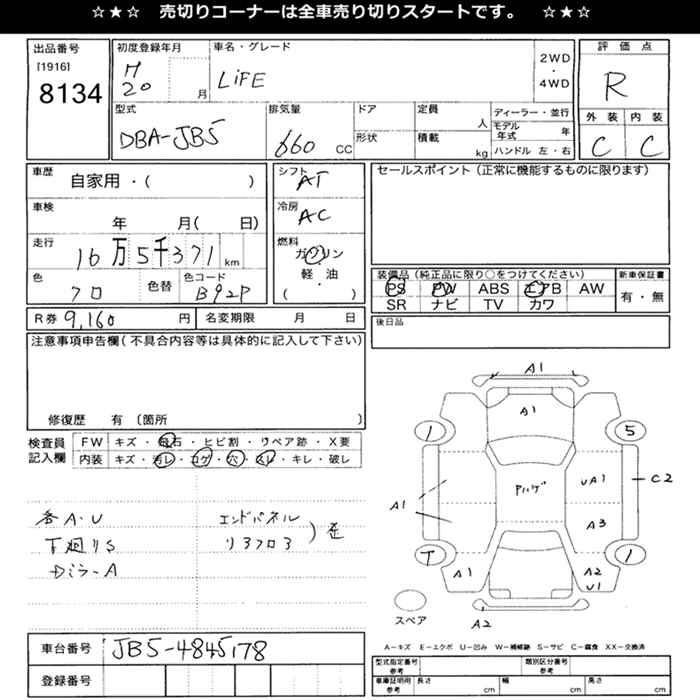 ☆★☆ 売切りコーナーは全車売り切りスタートです。 ☆★☆
出品番号 初度登録年月 車名・グレード 2WD・4WD 評価点
[1916] H LiFE R
8134 20 月
型式 排気量 ドア 定員 人 ディーラー・並行 外装 内装
DBA-JB5 660 CC 形状 積載 kg モデル年式 年 C C
ハンドル 左・右
車歴 自家用・( ) シフト AT セールスポイント(正常に機能するものに限ります)
車検 年 月( 日) 冷房 AC
走行 16万5千371 km 燃料 ガソリン
軽・油
( )
色 クロ 色替 色コード B92P
装備品(純正品に限り○をつけてください) 新車保証書
PS PW ABS エアB AW 有・無
SR ナビ TV カワ
R券 9,160 円 名変期限 月 日 後日品
注意事項申告欄(不具合内容等は具体的に記入して下さい)
修復歴 有 〔箇所 〕
検査員記入欄 FW キズ・飛石・ヒビ割・リペア跡・X要
内装 キズ・汚レ・コゲ・穴・スレ・キレ・破レ
各A・U エンドパネル
下廻りS リヨフロヨ )歪
DミラーA
A1
A1
1 5
Pハゲ UA1 C2
A1 A3
T 1
A1 A2
U1
スペア A2
車台番号 JB5-4845178
登録番号
A-キズ E-エクボ U-凹み W-補修跡 S-サビ C-腐食 XX-交換済
型式指定番号 参考 類別区分番号 参考
車庫証明用 参考 長さ cm 幅 cm 高さ cm